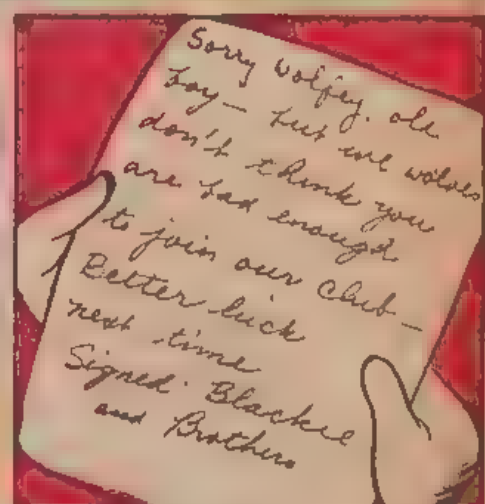 Sorry Wolfey, old
boy— but we wolves
don't think you
are bad enough
to join our club—
Better luck
next time
Signed Blackie
and Brothers